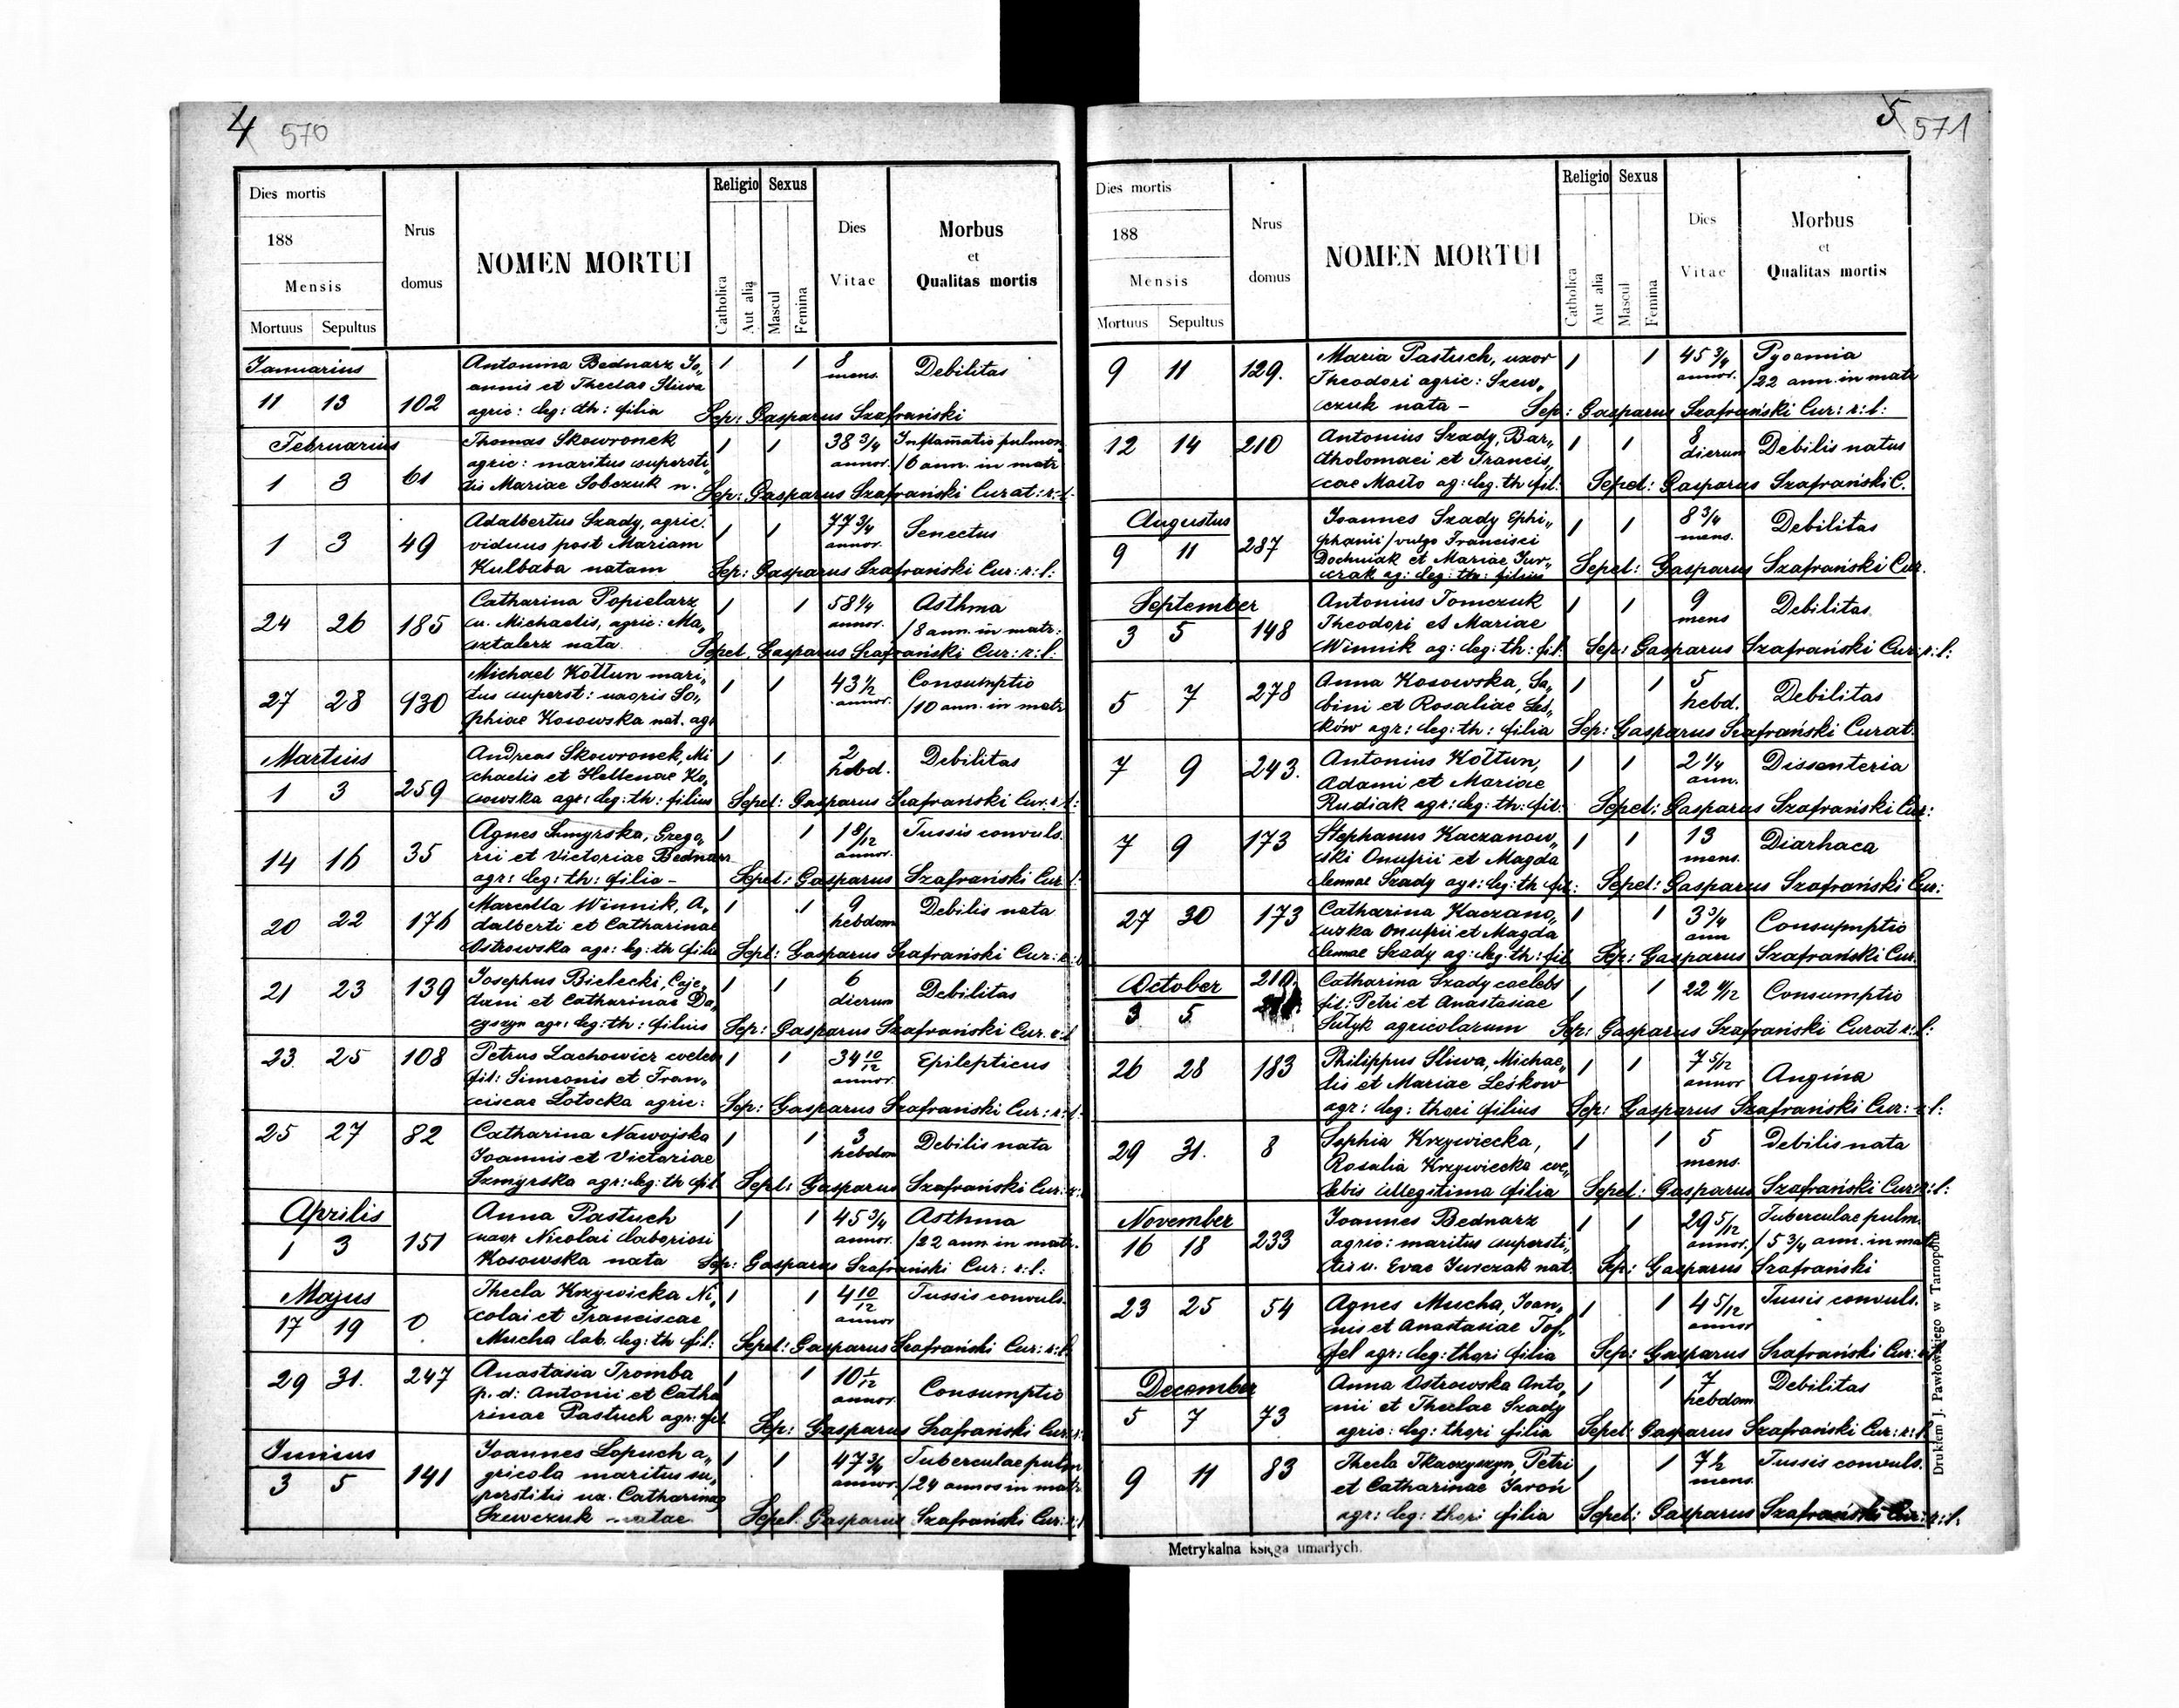 4 570
Dies mortis
188
Mensis
Mortuus Sepultus
Nrus
domus
NOMEN MORTUI
Religio Sexus
Catholica
Aut alia
Mascul
Femina
Dies
Vitae
Morbus
et
Qualitas mortis
Januarius Antonina Bednarz Jo„ 1 1 8 Debilitas
annis et Theclae Sliwa mens.
11 13 102 agric: leg: th: filia Sep: Gasparus Szafrański
Februarius Thomas Skowronek 1 1 38 3/4 Inflamatio pulmon.
agric: maritus supersti„ annor. /6 ann. in matr
1 3 61 tis Mariae Sobczuk n. Sep: Gasparus Szafrański Curat: r:l:
Adalbertus Szady, agric. 1 1 77 3/4 Senectus
1 3 49 viduus post Mariam annor.
Kulbaba natam Sep: Gasparus Szafrański Cur: r:l:
Catharina Popielarz 1 1 58 1/4 Asthma
24 26 185 u. Michaelis, agric: Ma„ annor. /8 ann. in matr:
sztalerz nata Sepel. Gasparus Szafrański Cur: r:l:
Michael Kołtun mari„ 1 1 43 1/2 Consumptio
27 28 930 tus superst: uxoris So„ annor. /10 ann. in matr
phiae Kosowska nat. agr
Martius Andreas Skowronek, Mi 1 1 2 Debilitas
chaelis et Hellenae Ko„ hebd.
1 3 259 sowska agr: leg: th: filius Sepel: Gasparus Szafrański Cur. r:l:
Agnes Szmyrska, Grego„ 1 1 1 8/12 Tussis convuls.
14 16 35 rii et Victoriae Bednarz annor.
agr: leg: th: filia – Sepel: Gasparus Szafrański Cur r:l:
Marcella Winnik, A„ 1 1 9 Debilis nata
20 22 176 dalberti et Catharinae hebdom
Ostrowska agr: leg: th filia Sepel: Gasparus Szafrański Cur: r:l:
Josephus Bielecki, Caje„ 1 1 6 Debilitas
21 23 139 tani et Catharinae Da„ dierum
cyszyn agr: leg: th: filius Sep: Gasparus Szafrański Cur. r:l
23 25 108 Petrus Lachowicz coeleb 1 1 34 10/12 Epilepticus
fil: Simeonis et Fran„ annor.
ciscae Łotocka agric: Sep: Gasparus Szafrański Cur: r:l:
25 27 82 Catharina Nawojska 1 1 3 Debilis nata
Joannis et Victoriae hebdom
Szmyrska agr: leg: th fil. Sepel: Gasparus Szafrański Cur: r:
Aprilis Anna Pastuch 1 1 45 3/4 Asthma
1 3 151 uxor Nicolai laboriosi annor. /22 ann. in matr.
Kosowska nata Sep: Gasparus Szafrański Cur: r:l:
Majus Thecla Krzywicka Ni„ 1 1 4 10/12 Tussis convuls.
17 19 0 colai et Franciscae annor
Mucha lab. leg: th fil: Sepel: Gasparus Szafrański Cur: r:l.
29 31. 247 Anastasia Tromba 1 1 10 1/12 Consumptio
p. d: Antonii et Catha annor.
rinae Pastuch agr: fil. Sep: Gasparus Szafrański Cur: r:
Junius Joannes Lopuch a„ 1 1 47 3/4 Tuberculae pulm
3 5 141 gricola maritus su„ annor. /24 annos in matr
perstitis ux. Catharinae
Szewczuk natae. Sepel. Gasparus Szafrański Cur: r:l
5 571
Dies mortis
188
Mensis
Mortuus Sepultus
Nrus
domus
NOMEN MORTUI
Religio Sexus
Catholica
Aut alia
Mascul
Femina
Dies
Vitae
Morbus
et
Qualitas mortis
9 11 129. Maria Pastuch, uxor 1 1 45 3/4 Pyoemia
Theodori agric: Szew„ annor. /22 ann. in matr
czuk nata – Sep: Gasparus Szafrański Cur: r:l:
12 14 210 Antonius Szady, Bar„ 1 1 8 Debilis natus
tholomaei et Francis„ dierum
cae Masło ag: leg: th fil: Sepel: Gasparus Szafrański C.
Augustus Joannes Szady Ephi„ 1 1 8 3/4 Debilitas
9 11 287 phanii /vulgo Francisci mens.
Dochniak et Mariae Jur„
czak ag: leg: th: filius Sepel: Gasparus Szafrański Cur.
September Antonius Tomczuk 1 1 9 Debilitas
3 5 148 Theodori et Mariae mens
Winnik ag: leg: th: fil: Sep: Gasparus Szafrański Cur: r:l:
5 7 278 Anna Kosowska, Sa„ 1 1 5 Debilitas
bini et Rosaliae Les„ hebd.
ków agr: leg: th: filia Sep: Gasparus Szafrański Curat.
7 9 243. Antonius Kołtun, 1 1 2 1/4 Dissenteria
Adami et Mariae ann.
Rudiak agr: leg: th: fil: Sepel: Gasparus Szafrański Cur:
7 9 173 Stephanus Kaczanow„ 1 1 13 Diarhaea
ski Onufrii et Magda mens.
lennae Szady agr: leg: th fil: Sepel: Gasparus Szafrański Cur:
27 30 173 Catharina Kaczano„ 1 1 3 3/4 Consumptio
wska Onufrii et Magda ann
lennae Szady ag: leg. th: fil Sep: Gasparus Szafrański Cur.
October 210. Catharina Szady coelebs 1 1 22 9/12 Consumptio
3 5 fil: Petri et Anastasiae
Sułyk agricolarum Sep: Gasparus Szafrański Curat r:l:
26 28 183 Philippus Sliwa, Michae„ 1 1 7 5/12 Angina
lis et Mariae Leśkow annor
agr: leg: thori filius Sep: Gasparus Szafrański Cur: r:l:
29 31. 8 Sophia Krzywiecka, 1 1 5 Debilis nata
Rosalia Krzywiecka coe„ mens.
lebis illegitima filia Sepel: Gasparus Szafrański Cur: r:l:
November Joannes Bednarz 1 1 29 5/12 Tuberculae pulm.
16 18 233 agric: maritus supersti„ annor. / 5 3/4 ann. in matr
tis u. Evae Jurczak nat. Sep: Gasparus Szafrański
23 25 54 Agnes Mucha, Joan„ 1 1 4 5/12 Tussis convuls.
nis et Anastasiae Tof„ annor
fel agr: leg: thori filia Sep: Gasparus Szafrański Cur: r:l
December Anna Ostrowska Anto„ 1 1 7 Debilitas
5 7 73 nii et Theclae Szady hebdom
agric: leg: thori filia Sepel: Gasparus Szafrański Cur: r:l.
9 11 83 Thecla Tkaczyszyn, Petri 1 1 7 1/2 Tussis convuls.
et Catharinae Jaroń mens.
agr: leg: thori filia Sepel: Gasparus Szafrański Cur: r:l.
Metrykalna księga umarłych.
Drukiem J. Pawłowskiego w Tarnopolu